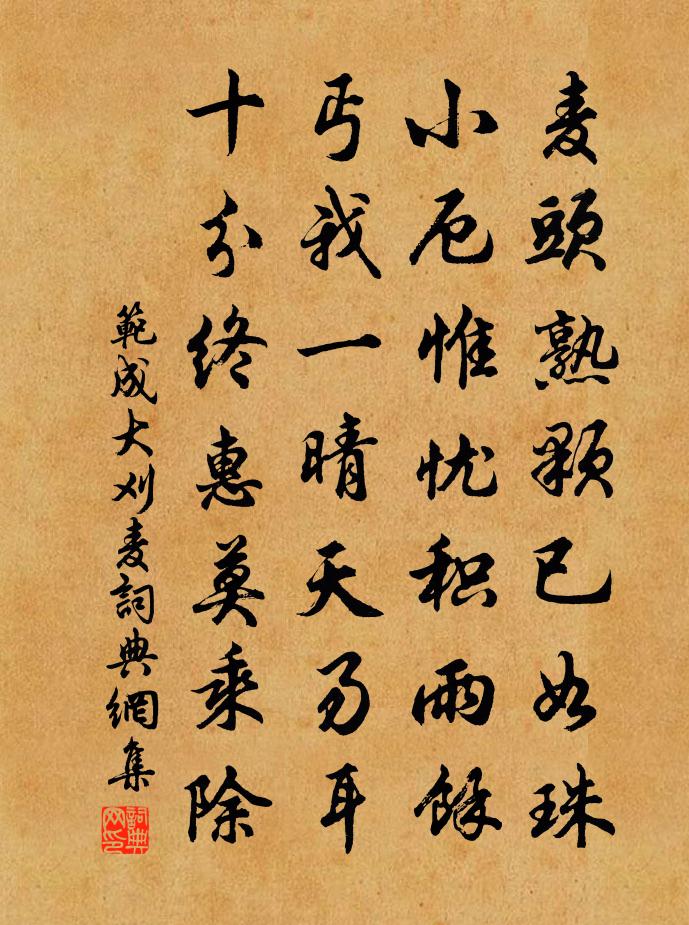 麦頭熟顆已如珠
小厄惟忧积雨餘
丐我一晴天易耳
十分终惠莫乘除
範成大刈麦詞典網集
詞典网印